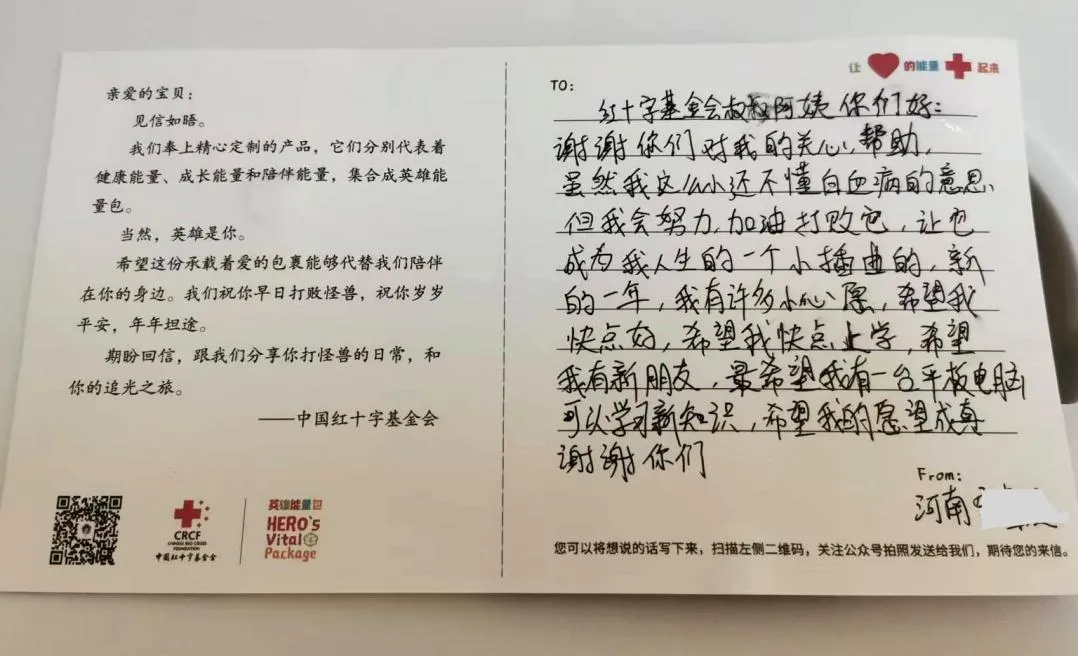 亲爱的宝贝：
见信如晤。
我们奉上精心定制的产品，它们分别代表着
健康能量、成长能量和陪伴能量，集合成英雄能
量包。
当然，英雄是你。
希望这份承载着爱的包裹能够代替我们陪伴
在你的身边。我们祝你早日打败怪兽，祝你岁岁
平安，年年坦途。
期盼回信，跟我们分享你打怪兽的日常，和
你的追光之旅。
——中国红十字基金会
CRCF
CHINESE RED CROSS
FOUNDATION
中国红十字基金会
英雄能量包
HERO's
Vital
Package
让 的能量 起来
TO：
红十字基金会叔叔阿姨你们好：
谢谢你们对我的关心，帮助，
虽然我这么小还不懂白血病的意思、
但我会努力，加油打败它，让它
成为我人生的一个小插曲的，新
的一年，我有许多小心愿，希望我
快点好，希望我快点上学，希望
我有新朋友，最希望我有一台平板电脑
可以学习新知识，希望我的愿望成真
谢谢你们
From：
河南
您可以将想说的话写下来，扫描左侧二维码，关注公众号拍照发送给我们，期待您的来信。